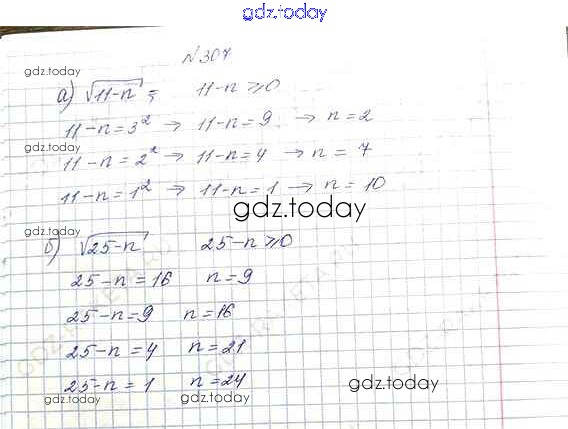 gdz.today
№307
gdz.today
а) √11-n; 11-n ≥ 0
11-n = 3² → 11-n = 9 → n = 2
11-n = 2² → 11-n = 4 → n = 7
gdz.today
11-n = 1² → 11-n = 1 → n = 10
gdz.today
б) √25-n 25-n ≥ 0
25-n = 16 n = 9
25-n = 9 n = 16
25-n = 4 n = 21
25-n = 1 n = 24
gdz.today
gdz.today
gdz.today